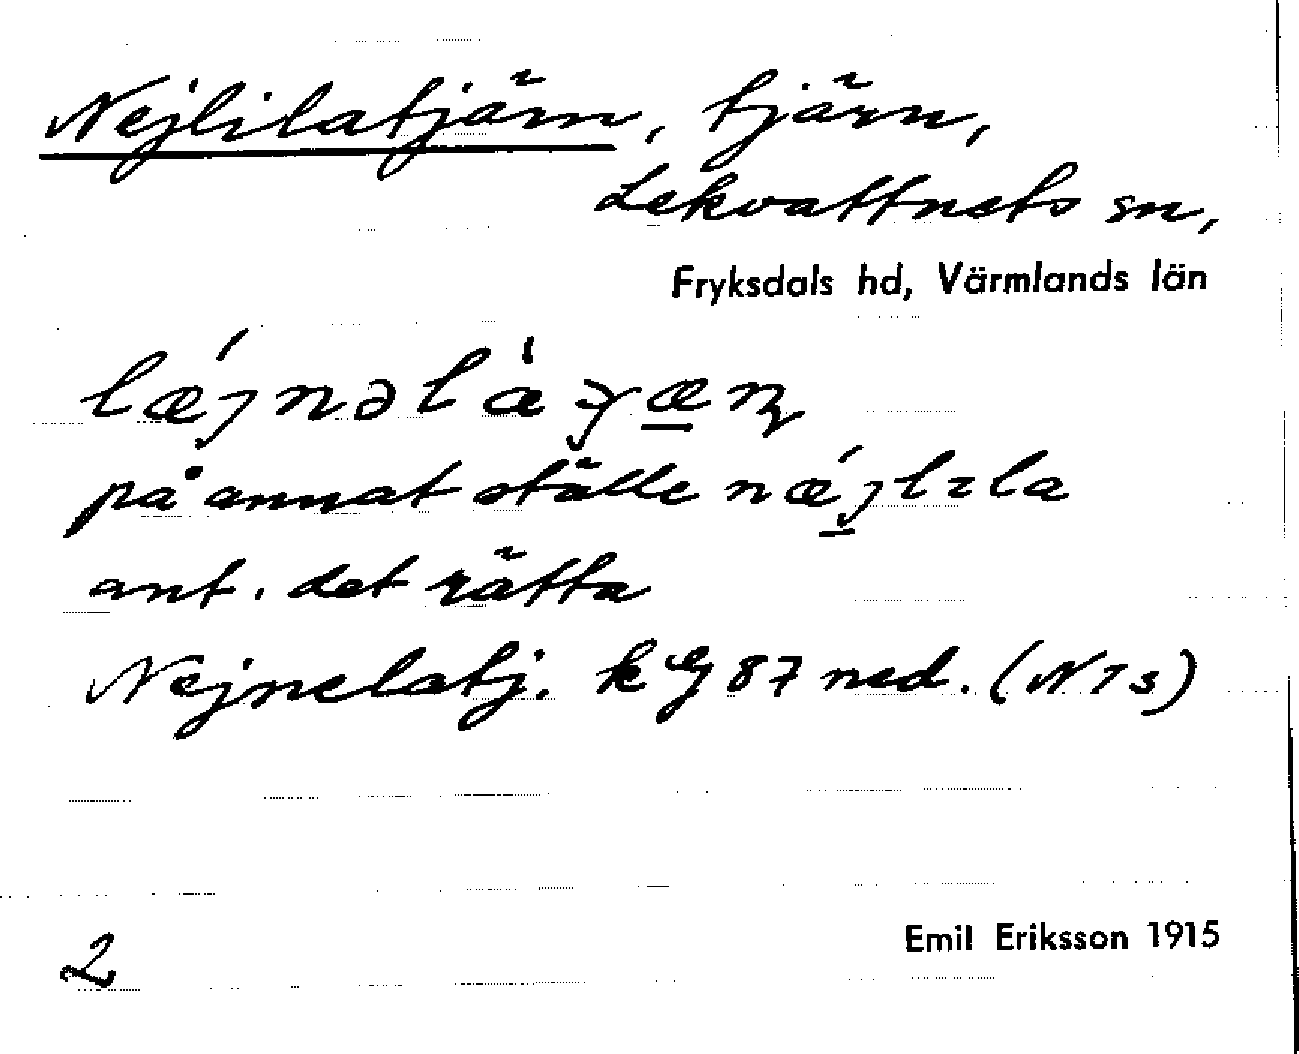 Nejlilatjärn, tjärn,
Lekvattnets sn,
Fryksdals hd, Värmlands län
på annat ställe nǽ̱ȷlıla
ant. det rätta
Nejnelatj. k G 87 ned. (N I s)
2
Emil Eriksson 1915